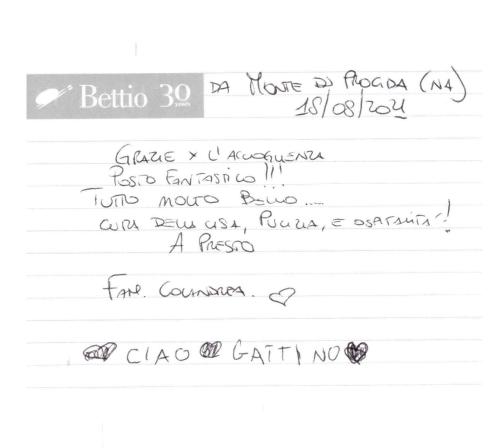 Bettio 30 years
DA MONTE DI PROCIDA (NA)
18/08/2021
GRAZIE X L'ACCOGLIENZA
POSTO FANTASTICO!!!
TUTTO MOLTO BELLO....
CURA DELLA CASA, PULIZIA, E OSPITALITA'!
A PRESTO
FAM. COLANDREA.
CIAO GATTINO